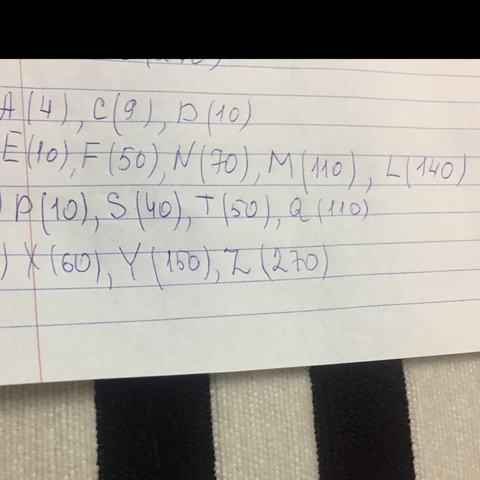 A(4), C(9), D(10)
E(10), F(50), N(70), M(110), L(140)
) P(10), S(40), T(50), Q(110)
) X(60), Y(150), Z(270)